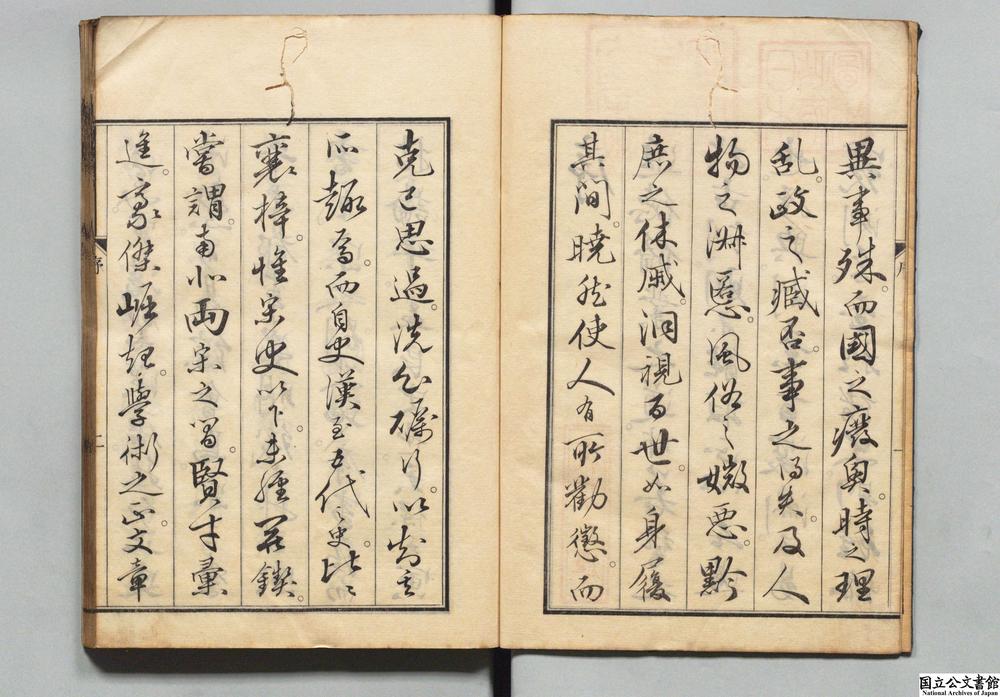 異事殊。而國之癈興。時之理
乱。政之臧否。事之得失。及人
物之淑慝。風俗之媺惡。黔
庶之休戚。洞視百世。如身履
其間。曉然使人有所勸懲。而
克己思過。洗心礪行。以
所趣焉。而自史漢至五代之史。比々
襄梓。惟宋史以下。未經英鍥。
嘗謂南北両宋之間。賢才彙
進。豪傑崛起。學術之正。文章
序
二
国立公文書館
National Archives of Japan